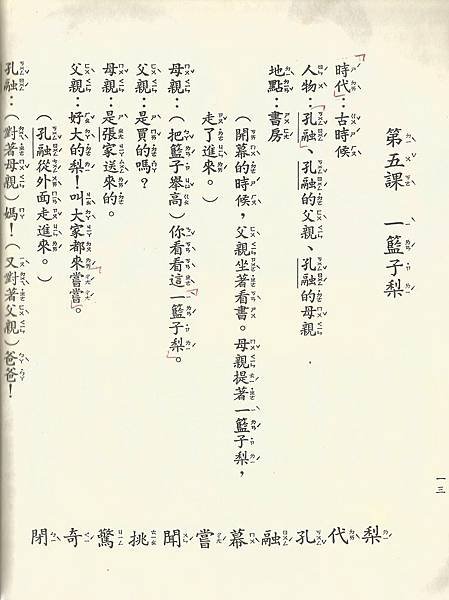 第五課　一籃子梨
時代：古時候
人物：孔融、孔融的父親、孔融的母親
地點：書房
（開幕的時候，父親坐著看書。母親提著一籃子梨，
走了進來。）
母親：（把籃子舉高）你看看這一籃子梨。
父親：是買的嗎？
母親：是張家送來的。
父親：好大的梨！叫大家都來嘗嘗。
（孔融從外面走進來。）
孔融：（對著母親）媽！（又對著父親）爸爸！
一三
梨代孔融幕嘗聞挑驚奇閉